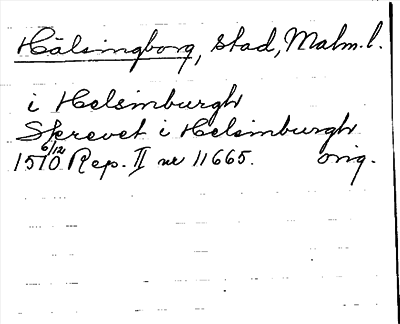 Hälsingborg, stad, Malm. l.
i Helsinburgh
Skrevet i Helsinburgh
1510 6/12 Rep. II nr 11665. orig.